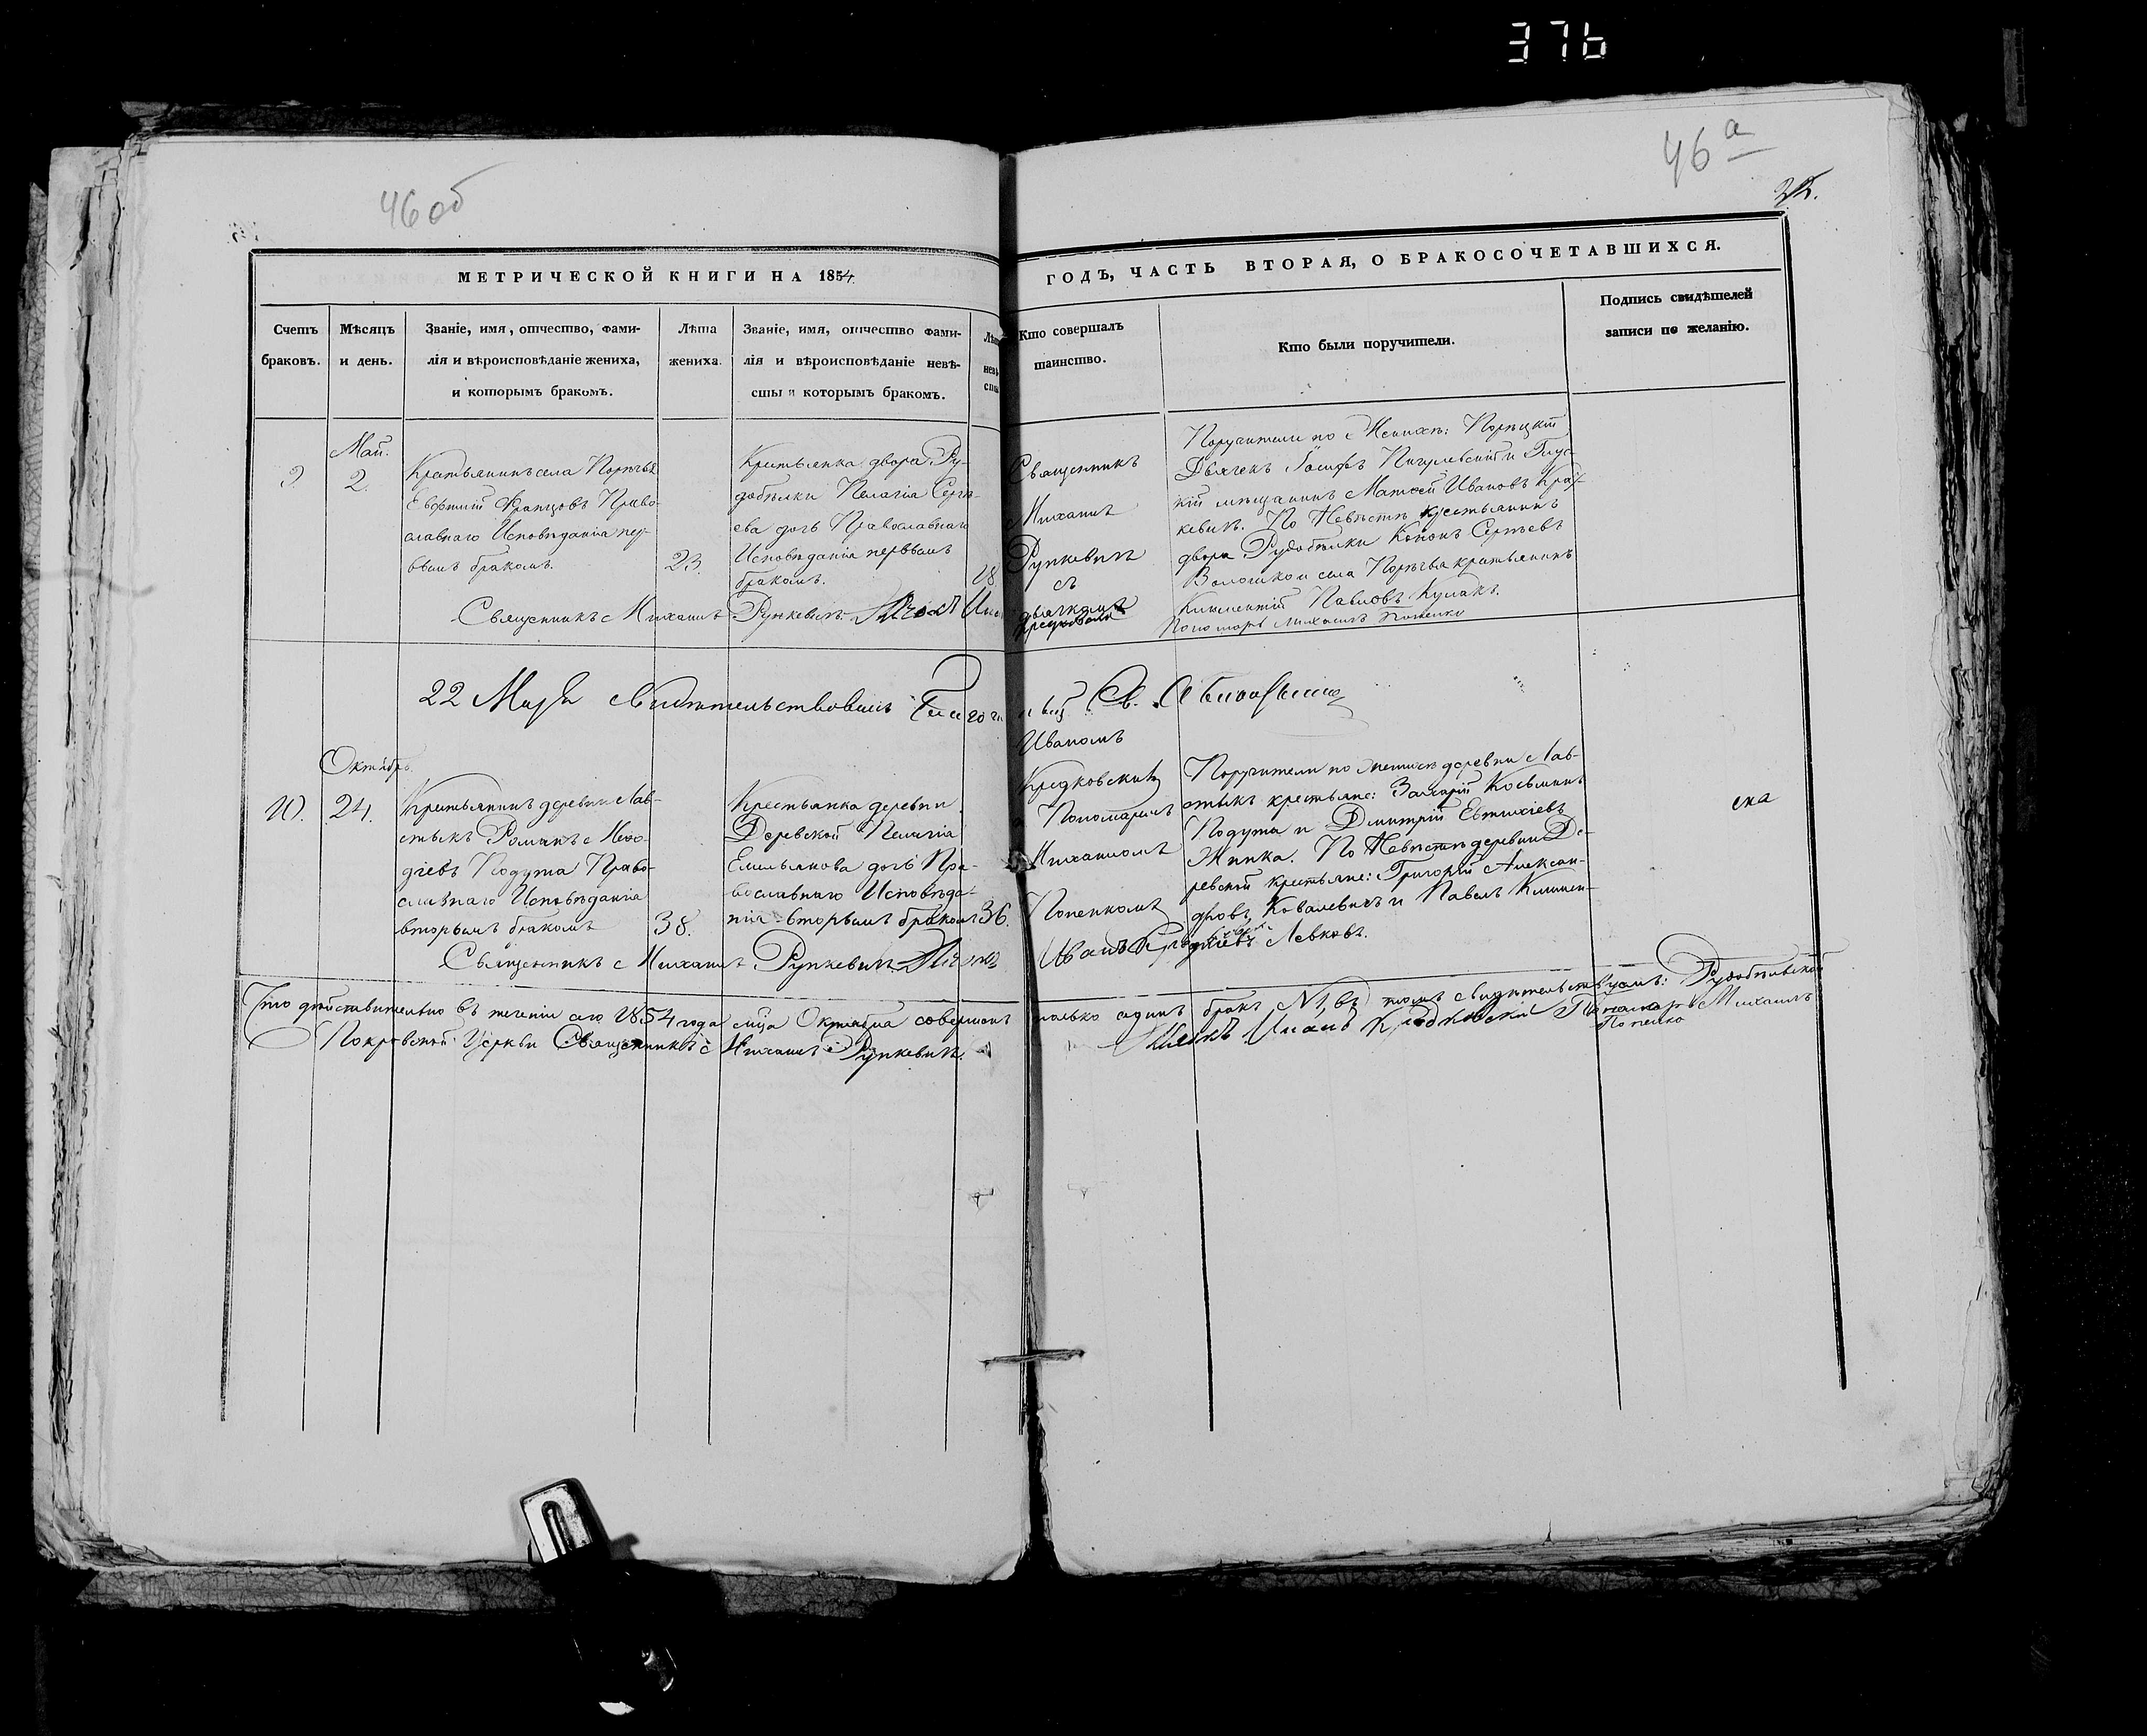 376
46 об
46 а
МЕТРИЧЕСКОЙ КНИГИ НА 1854
ГОДЪ, ЧАСТЬ ВТОРАЯ, О БРАКОСОЧЕТАВШИХСЯ.
Счетъ
браковъ.
Мѣсяцъ
и день.
Званіе, имя, отчество, фами-
лія и вѣроисповѣданіе жениха,
и которымъ бракомъ.
Лѣта
жениха.
Званіе, имя, отчество фами-
лія и вѣроисповѣданіе невѣ-
сты и которымъ бракомъ.
Лѣта
невѣ-
сты
Кто совершалъ
таинство.
Кто были поручители.
Подпись свидѣтелей
записи по желанію.
9
Май.
2.
Крестьянинъ села Порѣчья
Евфимій Францовъ Право-
славнаго Исповѣданія пер-
вымъ бракомъ.
23.
Крестьянка двора Ру-
добѣлки Пелагія Сергѣ-
ева дочь Православнаго
Исповѣданія первымъ
бракомъ.
18
Священникъ
Михаилъ
Рункевичъ
съ
дьячкомъ
Поручители по Женихѣ: Порѣцкій
Дьячекъ Іосифъ Пигулевскій и Глус-
кій мѣщанинъ Матѳей Ивановъ
кевичъ. По Невѣстѣ крестьянинъ
двора Рудобѣлки Кононъ Сергѣевъ
Волошко и села Порѣчья крестьянинъ
Климентій Павловъ Кулакъ.
Священникъ Михаилъ Рункевичъ.
Пономарь Михаилъ Попенко
22 Мая Свидѣтельствовалъ Благочинный Св.
10.
Октябрь
24.
Крестьянинъ деревни Лав-
стыкъ Романъ Меѳо-
діевъ Подута Право-
славнаго Исповѣданія
вторымъ бракомъ
38.
Крестьянка деревни
Деревской Пелагія
Емельянова дочь Пра-
вославнаго Исповѣда-
нія вторымъ бракомъ
36.
Иваномъ
Кредковскимъ
Пономаремъ
Михаиломъ
Попенкомъ
Поручители по женихѣ деревни Лав-
стыкъ крестьяне: Захарій Косьминъ
Подута и Дмитрій Евтихіевъ
Жинка. По Невѣстѣ деревни Де-
ревской крестьяне: Григорій Алексан-
дровъ Ковалевичъ и Павелъ Климен-
тіевъ Левковъ.
Священникъ Михаилъ Рункевичъ
Что дѣйствительно въ теченіи сего 1854 года м-ца Октября совершенъ только одинъ бракъ №1, въ томъ свидѣтельствуемъ: Рудобѣлской
Покровской Церкви Священникъ Михаилъ Рункевичъ. Дьячекъ Иванъ Кредковскій Пономарь Михаилъ
Попенко